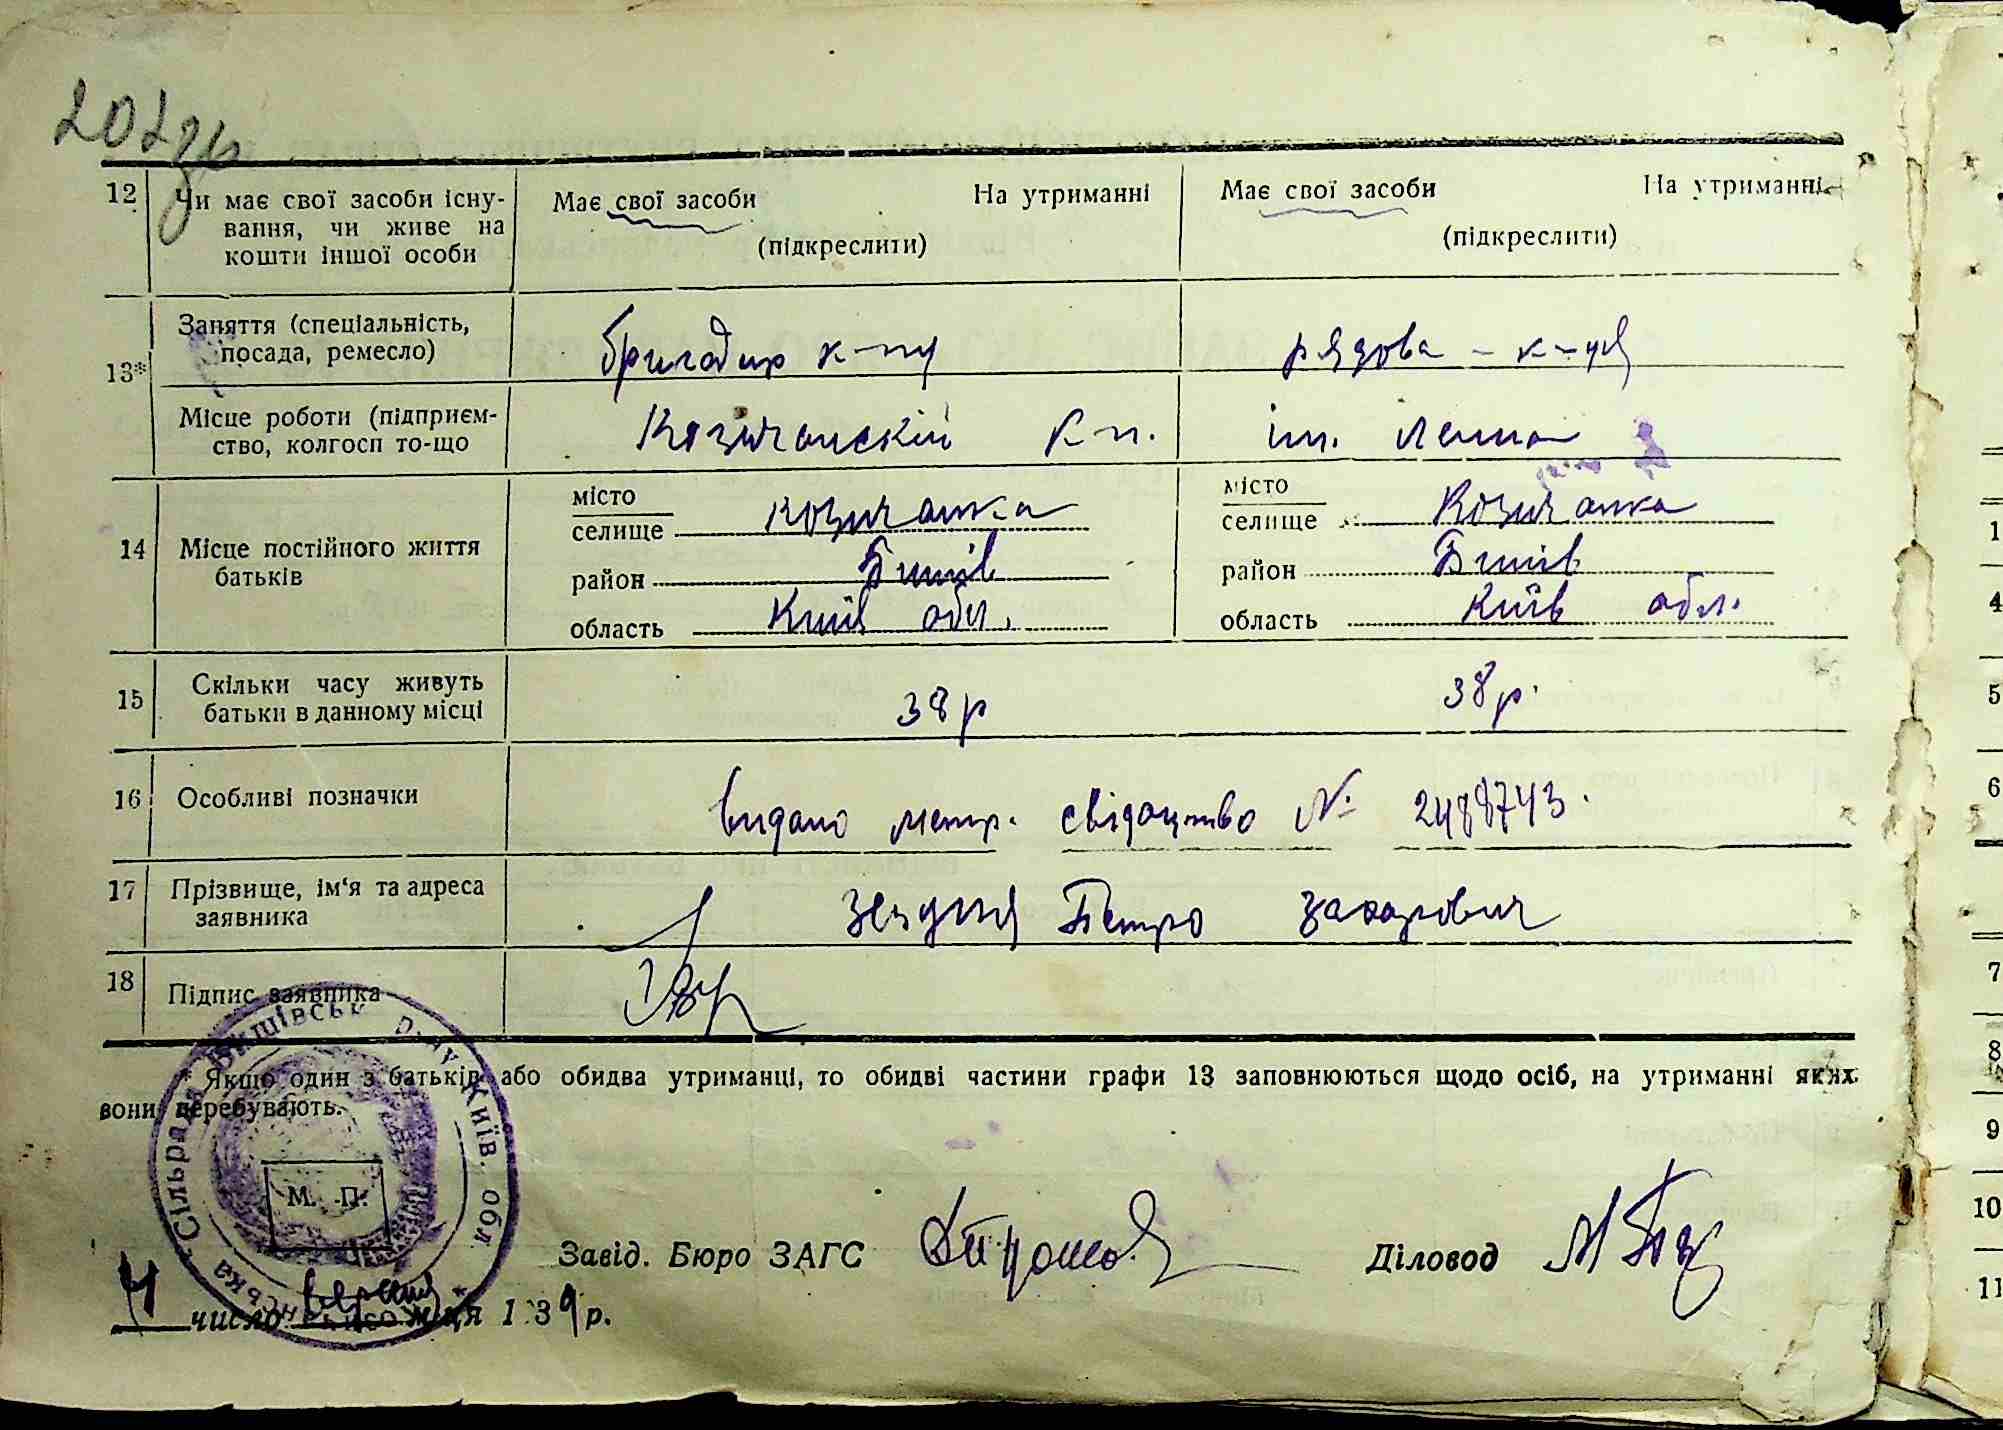 202зв
12 Чи має свої засоби існу- Має свої засоби На утриманні Має свої засоби На утриманні
вання, чи живе на (підкреслити) (підкреслити)
кошти іншої особи
13* Заняття (спеціальність, бригадир к-пу рядова - к-ця
посада, ремесло)
Місце роботи (підприєм- Козичанскій к-п. ім. Леніна
ство, колгосп то-що
14 Місце постійного життя
батьків
місто
селище Козичанка
район Бишів
область Київ обл.
місто
селище Козичанка
район Бишів
область Київ обл.
15 Скільки часу живуть 38 р 38 р.
батьки в данному місці
16 Особливі позначки видано метр. свідоцтво № 2488743.
17 Прізвище, ім‘я та адреса Петро Захарович
заявника
18 Підпис заявника
* Якщо один з батьків або обидва утриманці, то обидві частини графи 13 заповнюються щодо осіб, на утриманні яких
вони перебувають.
Сільрада Бишівськ р-ну Київ. обл.
М. П.
Завід. Бюро ЗАГС Діловод
4 число м-ця 1939 р.
1
4
5
6
7
8
9
10
11